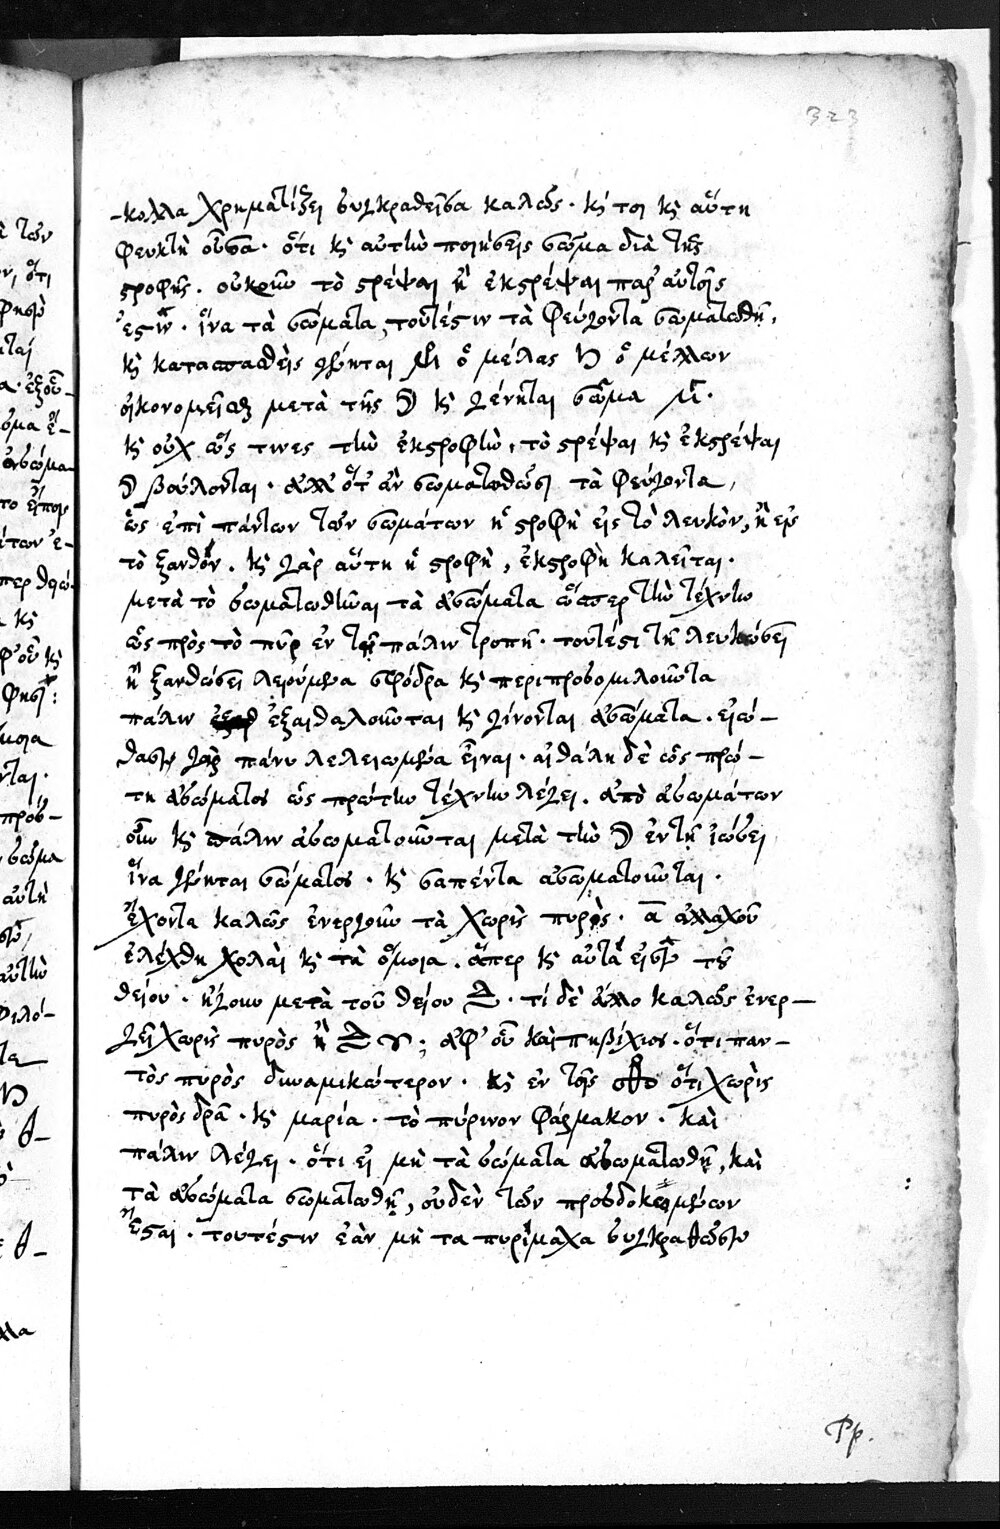 323
-κολλα χρηματίζει συγκραθεῖσα καλῶς. καί τοι καὶ αὕτη
φευκτὴ οὖσα. ὅτι καὶ αὐτὴν ποιήσεις σῶμα διὰ τῆς
στροφῆς. οὐκοῦν τὸ στρέψαι ἢ ἐκστρέψαι παρ' αὐτοῖς
ἐστιν. ἵνα τὰ σώματα, τουτέστιν τὰ φεύγοντα σωματωθῇ,
καὶ κατασπασθεὶς γένηται ὁ μέλας ♄ ὁ μέλλων
οἰκονομεῖσθαι μετὰ τῆς ☽ καὶ γένηται σῶμα
καὶ οὐχ ὥς τινες τὴν ἐκστροφὴν, τὸ στρέψαι καὶ ἐκστρέψαι
☽ βούλονται. ἀλλ' ὅτ' ἂν σωματωθῶσι τὰ φεύγοντα,
ὡς ἐπὶ πάντων τῶν σωμάτων ἡ στροφὴ εἰς τὸ λευκὸν, ἢ εἰς
τὸ ξανθόν. καὶ γὰρ αὕτη ἡ στροφὴ, ἐκστροφὴ καλεῖται.
μετὰ τὸ σωματωθῆναι τὰ ἀσώματα ὥσπερ τὴν τέχνην
ὡς πρὸς τὸ πῦρ ἐν τῇ πάλιν τροπῇ. τουτέστι τῇ λευκώσει
ἢ ξανθώσει λειούμενα σφόδρα καὶ περιπροσομιλοῦντα
πάλιν ἐξαιθαλοῦνται καὶ γίνονται ἀσώματα. εἰώ-
θασιν γὰρ πάνυ λελειωμένα εἶναι. αἰθάλη δὲ ὡς πρώ-
τη ἀσώματος ὡς πρώτην τέχνην λέγει. ἀπὸ ἀσωμάτων
οὖν καὶ πάλιν ἀσωματοῦνται μετὰ τὴν ☽ ἐν τῇ ἰώσει
ἵνα γένηται σώματος. καὶ σαπέντα ἀσωματοῦνται.
ἔχοντα καλῶς ἐνεργοῦν τὰ χωρὶς πυρὸς. ἃ ἀλλαχοῦ
ἐλέχθη χολαὶ καὶ τὰ ὅμοια. ἅπερ καὶ αὐτὰ εἰσιν τοῦ
θείου. ἤγουν μετὰ τοῦ θείου. τί δὲ ἄλλο καλῶς ἐνερ-
γεῖ χωρὶς πυρὸς ἢ ; ἀφ' οὗ καὶ πηβίχιος. ὅτι παν-
τὸς πυρὸς δυναμικώτερον. καὶ ἐν τοῖς ὅτι χωρὶς
πυρὸς δρᾶ. καὶ μαρία. τὸ πύρινον φάρμακον. καὶ
πάλιν λέγει. ὅτι εἰ μὴ τὰ σώματα ἀσωματωθῇ, καὶ
τὰ ἀσώματα σωματωθῇ, οὐδὲν τῶν προσδοκωμένων
ἔσται. τουτέστιν ἐὰν μὴ τα πυρίμαχα συγκραθῶσιν
Ρρ.